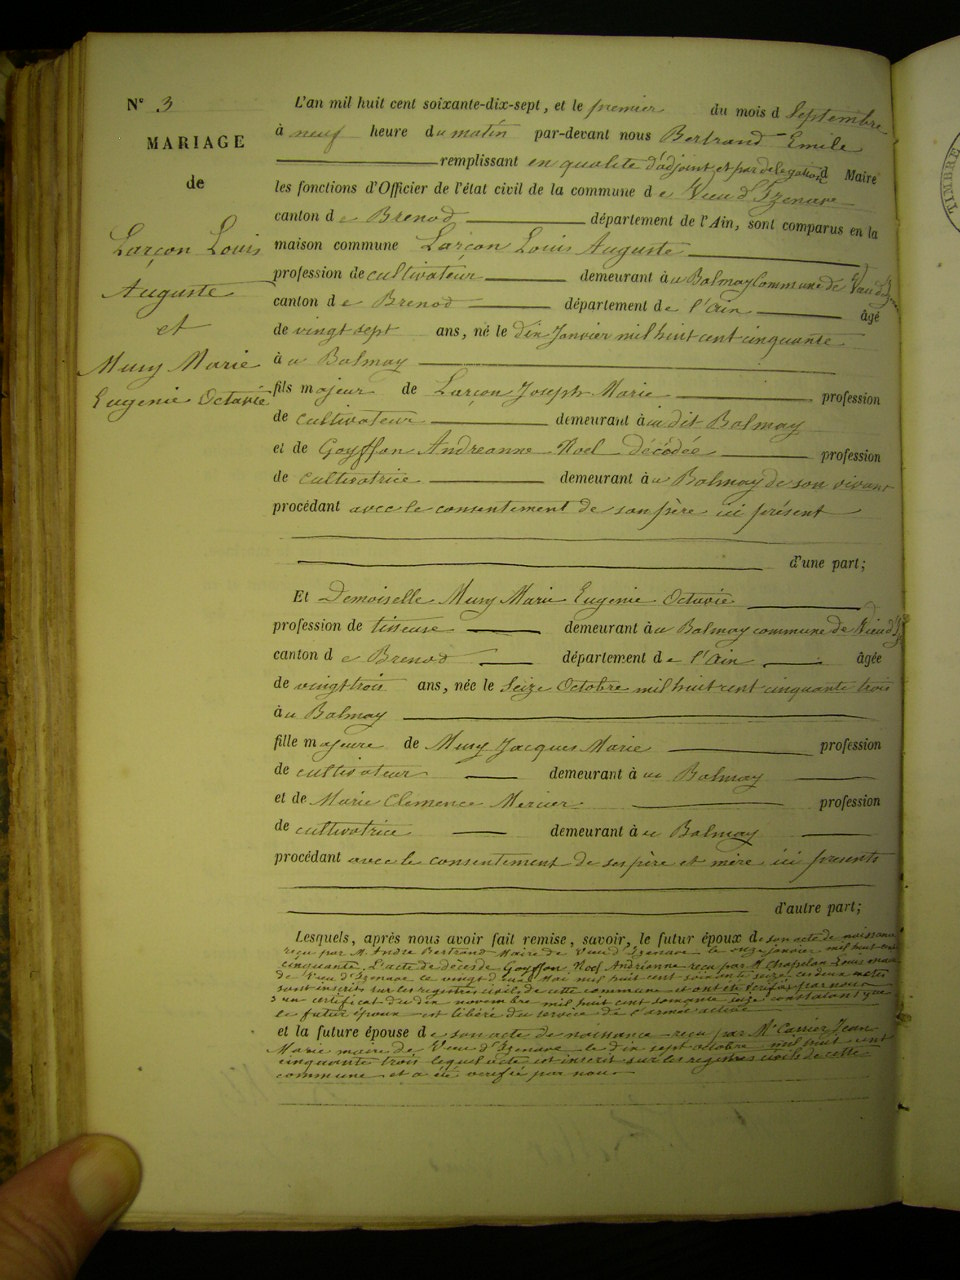 N° 3
MARIAGE
de
Larçon Louis
Auguste
et
Musy Marie
Eugenie Octavie
L'an mil huit cent soixante-dix-sept, et le premier du mois d Septembre
à neuf heure du matin par-devant nous Bertrand Emile
remplissant en qualité d'adjoint et par délégation d Maire
les fonctions d'Officier de l'état civil de la commune d e Vieu d'Izenave
canton d e Brenod département de l'Ain, sont comparus en la
maison commune Larçon Louis Auguste
profession de cultivateur demeurant à u Balmay Commune de Vieu d'Iz
canton d e Brenod département d e l'Ain âgé
de vingt sept ans, né le dix Janvier mil huit cent cinquante
à u Balmay
fils majeur de Larçon Joseph Marie profession
de cultivateur demeurant à u dit Balmay
et de Goyffon Andreanne Noel décédée profession
de cultivatrice demeurant à u Balmay de son vivant
procédant avec le consentement de son père ici présent
d'une part;
Et Demoiselle Musy Marie Eugenie Octavie
profession de tisseuse demeurant à u Balmay commune de Vieu d'Iz
canton d e Brenod département d e l'Ain âgée
de vingt trois ans, née le Seize Octobre mil huit cent cinquante trois
à u Balmay
fille majeure de Musy Jacques Marie profession
de cultivateur demeurant à u Balmay
et de Marie Clémence Mercier profession
de cultivatrice demeurant à u Balmay
procédant avec le consentement de ses père et mère ici présents
d'autre part;
Lesquels, après nous avoir fait remise, savoir, le futur époux d e son acte de naissance
reçu par M. André Bertrand Maire de Vieu d'Izenave le onze janvier mil huit cent
cinquante, L'acte de décès de Goyffon Noel Andrienne reçu par M. Chapelan Louis maire
de Vieu d'Izenave le vingt deux Mai mil huit cent soixante seize ces deux actes
sont inscrits sur les registres civils de cette commune et ont été vérifiés par nous
3° un certificat du dix novembre mil huit cent soixante seize constatant que
le futur époux est libéré du service de l'armée active
et la future épouse d e son acte de naissance reçu par Mr Carrier Jean
Marie maire de Vieu d'Izenave le dix sept octobre mil huit cent
cinquante trois lequel acte est inscrit sur les registres civils de cette
commune et a été vérifié par nous
TIMBRE